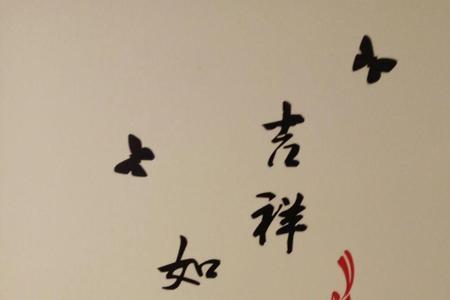 吉祥
如